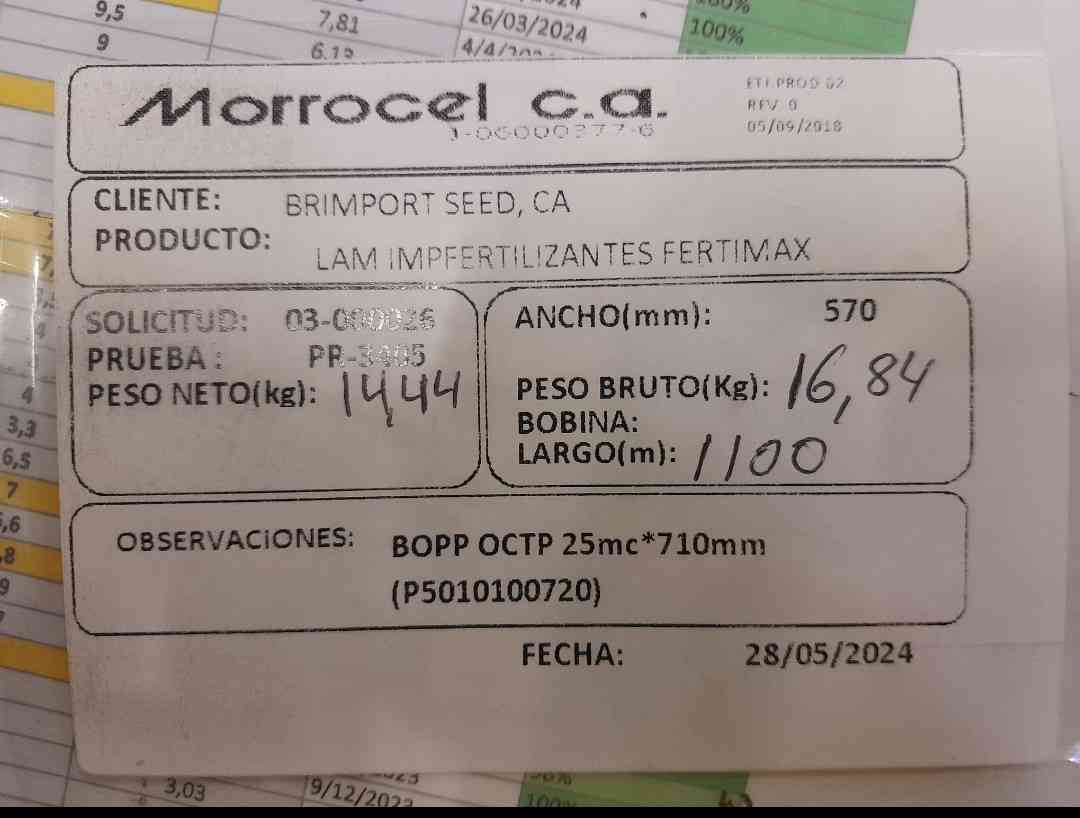 9,5 7,81 26/03/2024 100%
9
Morrocel c.a.
ETI.PROD 02
REV 0
05/09/2018
CLIENTE: BRIMPORT SEED, CA
PRODUCTO: LAM IMPFERTILIZANTES FERTIMAX
SOLICITUD: 03-000026
PRUEBA : PR-3405
PESO NETO(kg): 14,44
ANCHO(mm): 570
PESO BRUTO(Kg): 16,84
BOBINA:
LARGO(m): 1100
4
3,3
6,5
7
OBSERVACIONES: BOPP OCTP 25mc*710mm
(P5010100720)
FECHA: 28/05/2024
3,03 9/12/2023
100%